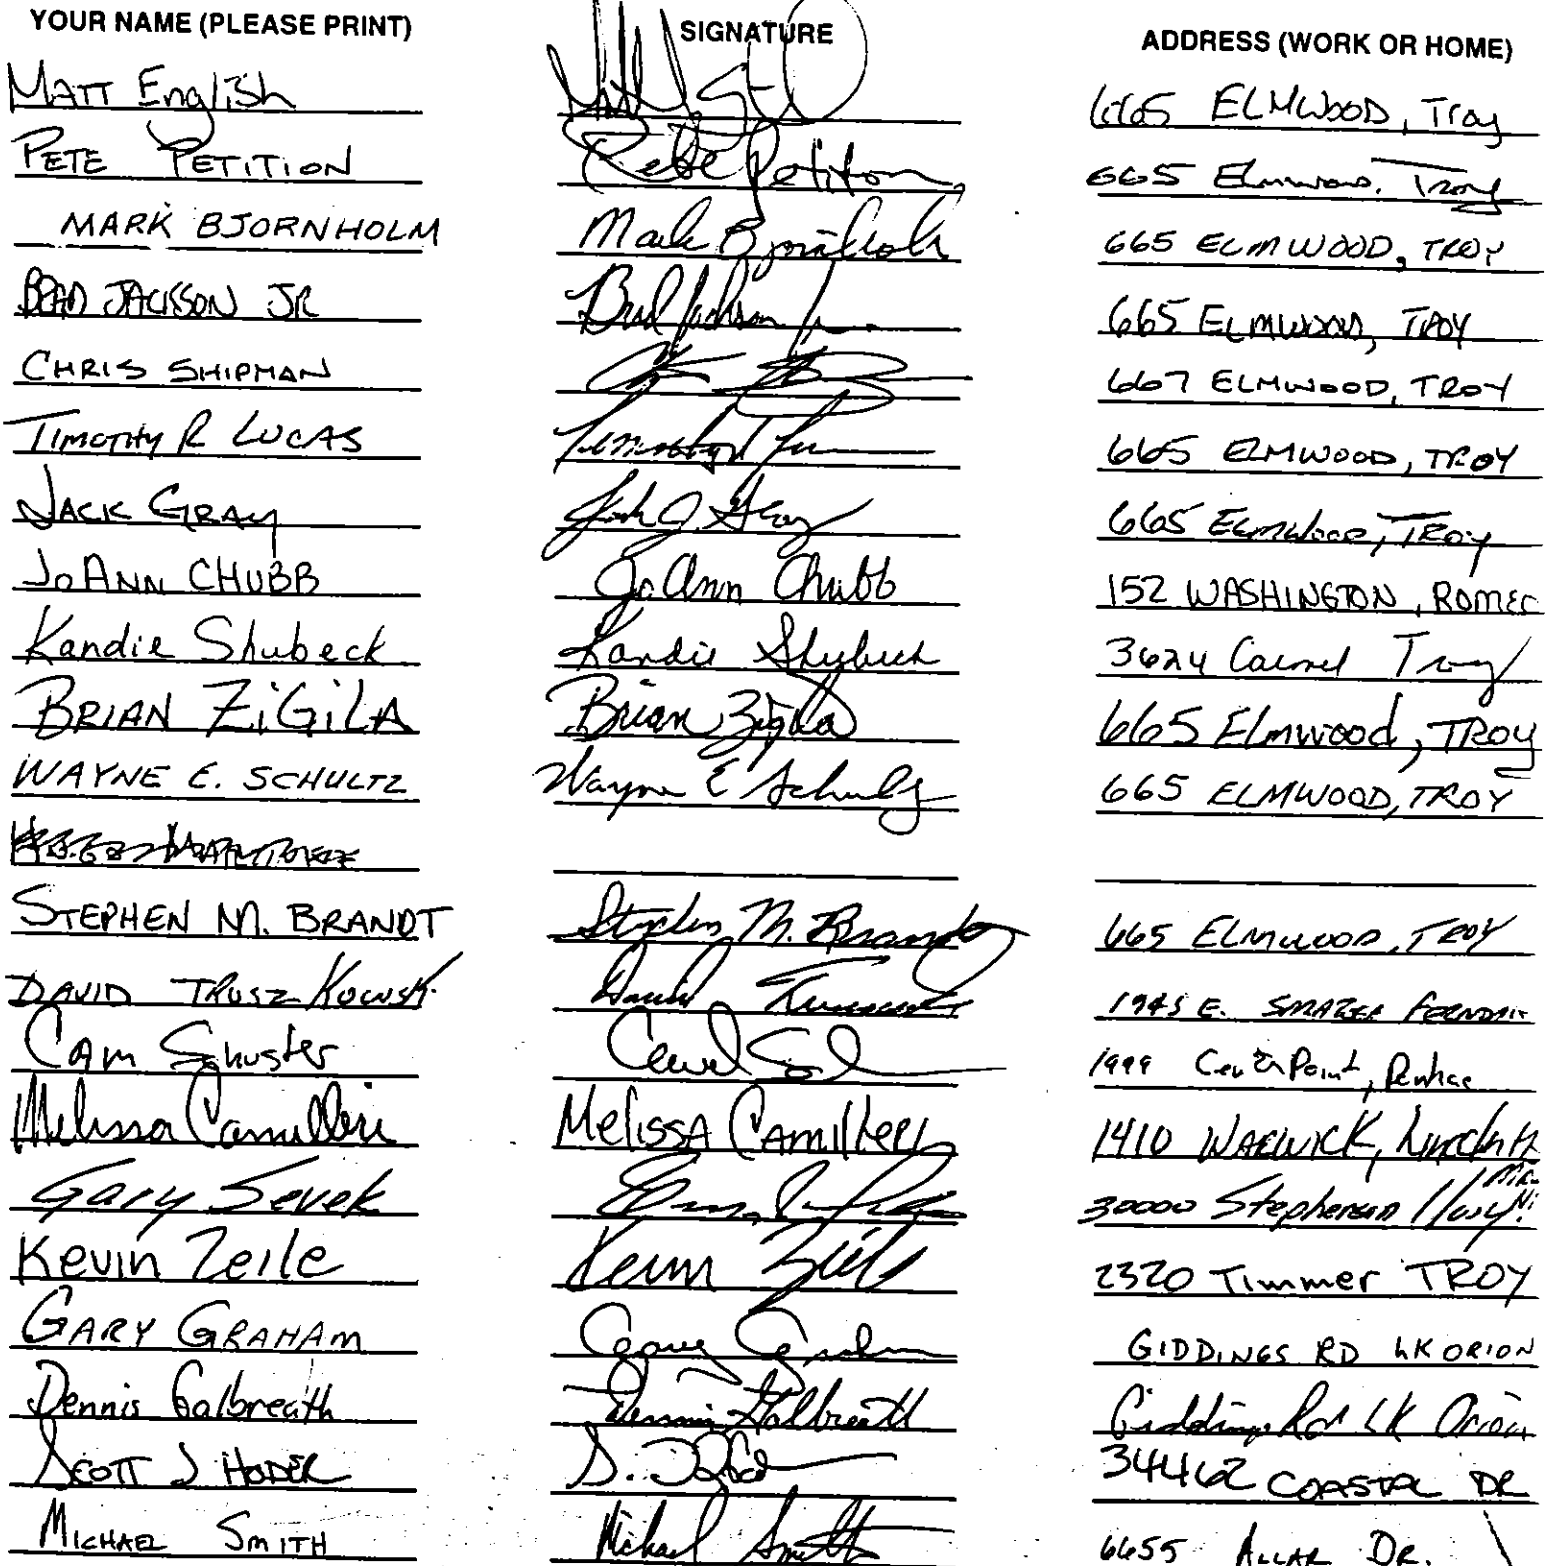 YOUR NAME (PLEASE PRINT) SIGNATURE ADDRESS (WORK OR HOME)
MATT English 665 ELMWOOD, Troy
PETE PETITION Pete Petition 665 Elmwood, Troy
MARK BJORNHOLM Mark Bjornholm 665 ELMWOOD, TROY
BRAD JACKSON JR Brad Jackson Jr. 665 ELMWOOD, TROY
CHRIS SHIPMAN 667 ELMWOOD, TROY
TIMOTHY R LUCAS Timothy 665 ELMWOOD, TROY
JACK GRAY Jack J. Gray 665 ELMWOOD, TROY
JoANN CHUBB JoAnn Chubb 152 WASHINGTON, ROMEO
Kandie Shubeck Kandie Shubeck 3624 Carmel Troy
BRIAN ZiGiLA Brian Zigila 665 Elmwood, TROY
WAYNE E. SCHULTZ Wayne E Schultz 665 ELMWOOD, TROY
STEPHEN M. BRANDT Stephen M. Brandt 665 ELMWOOD, TROY
DAVID TRUSZKOWSKI David 1945 E.
Cam Shuster 1999 Pontiac
Melissa Camilleri MelissA CAmilleri 1410 WARWICK, Lincoln Pk
Gary Sevek 30000 Stephenson Hwy
Kevin Zeile Kevin Zeile 2320 Timmer TROY
GARY GRAHAM Gary Graham GIDDINGS RD LK ORION
Dennis Galbreath Dennis Galbreath Giddings Rd LK Orion
SCOTT J HODER 34462 COASTAL DR
MICHAEL SMITH Michael Smith 6655 ALLAR DR.